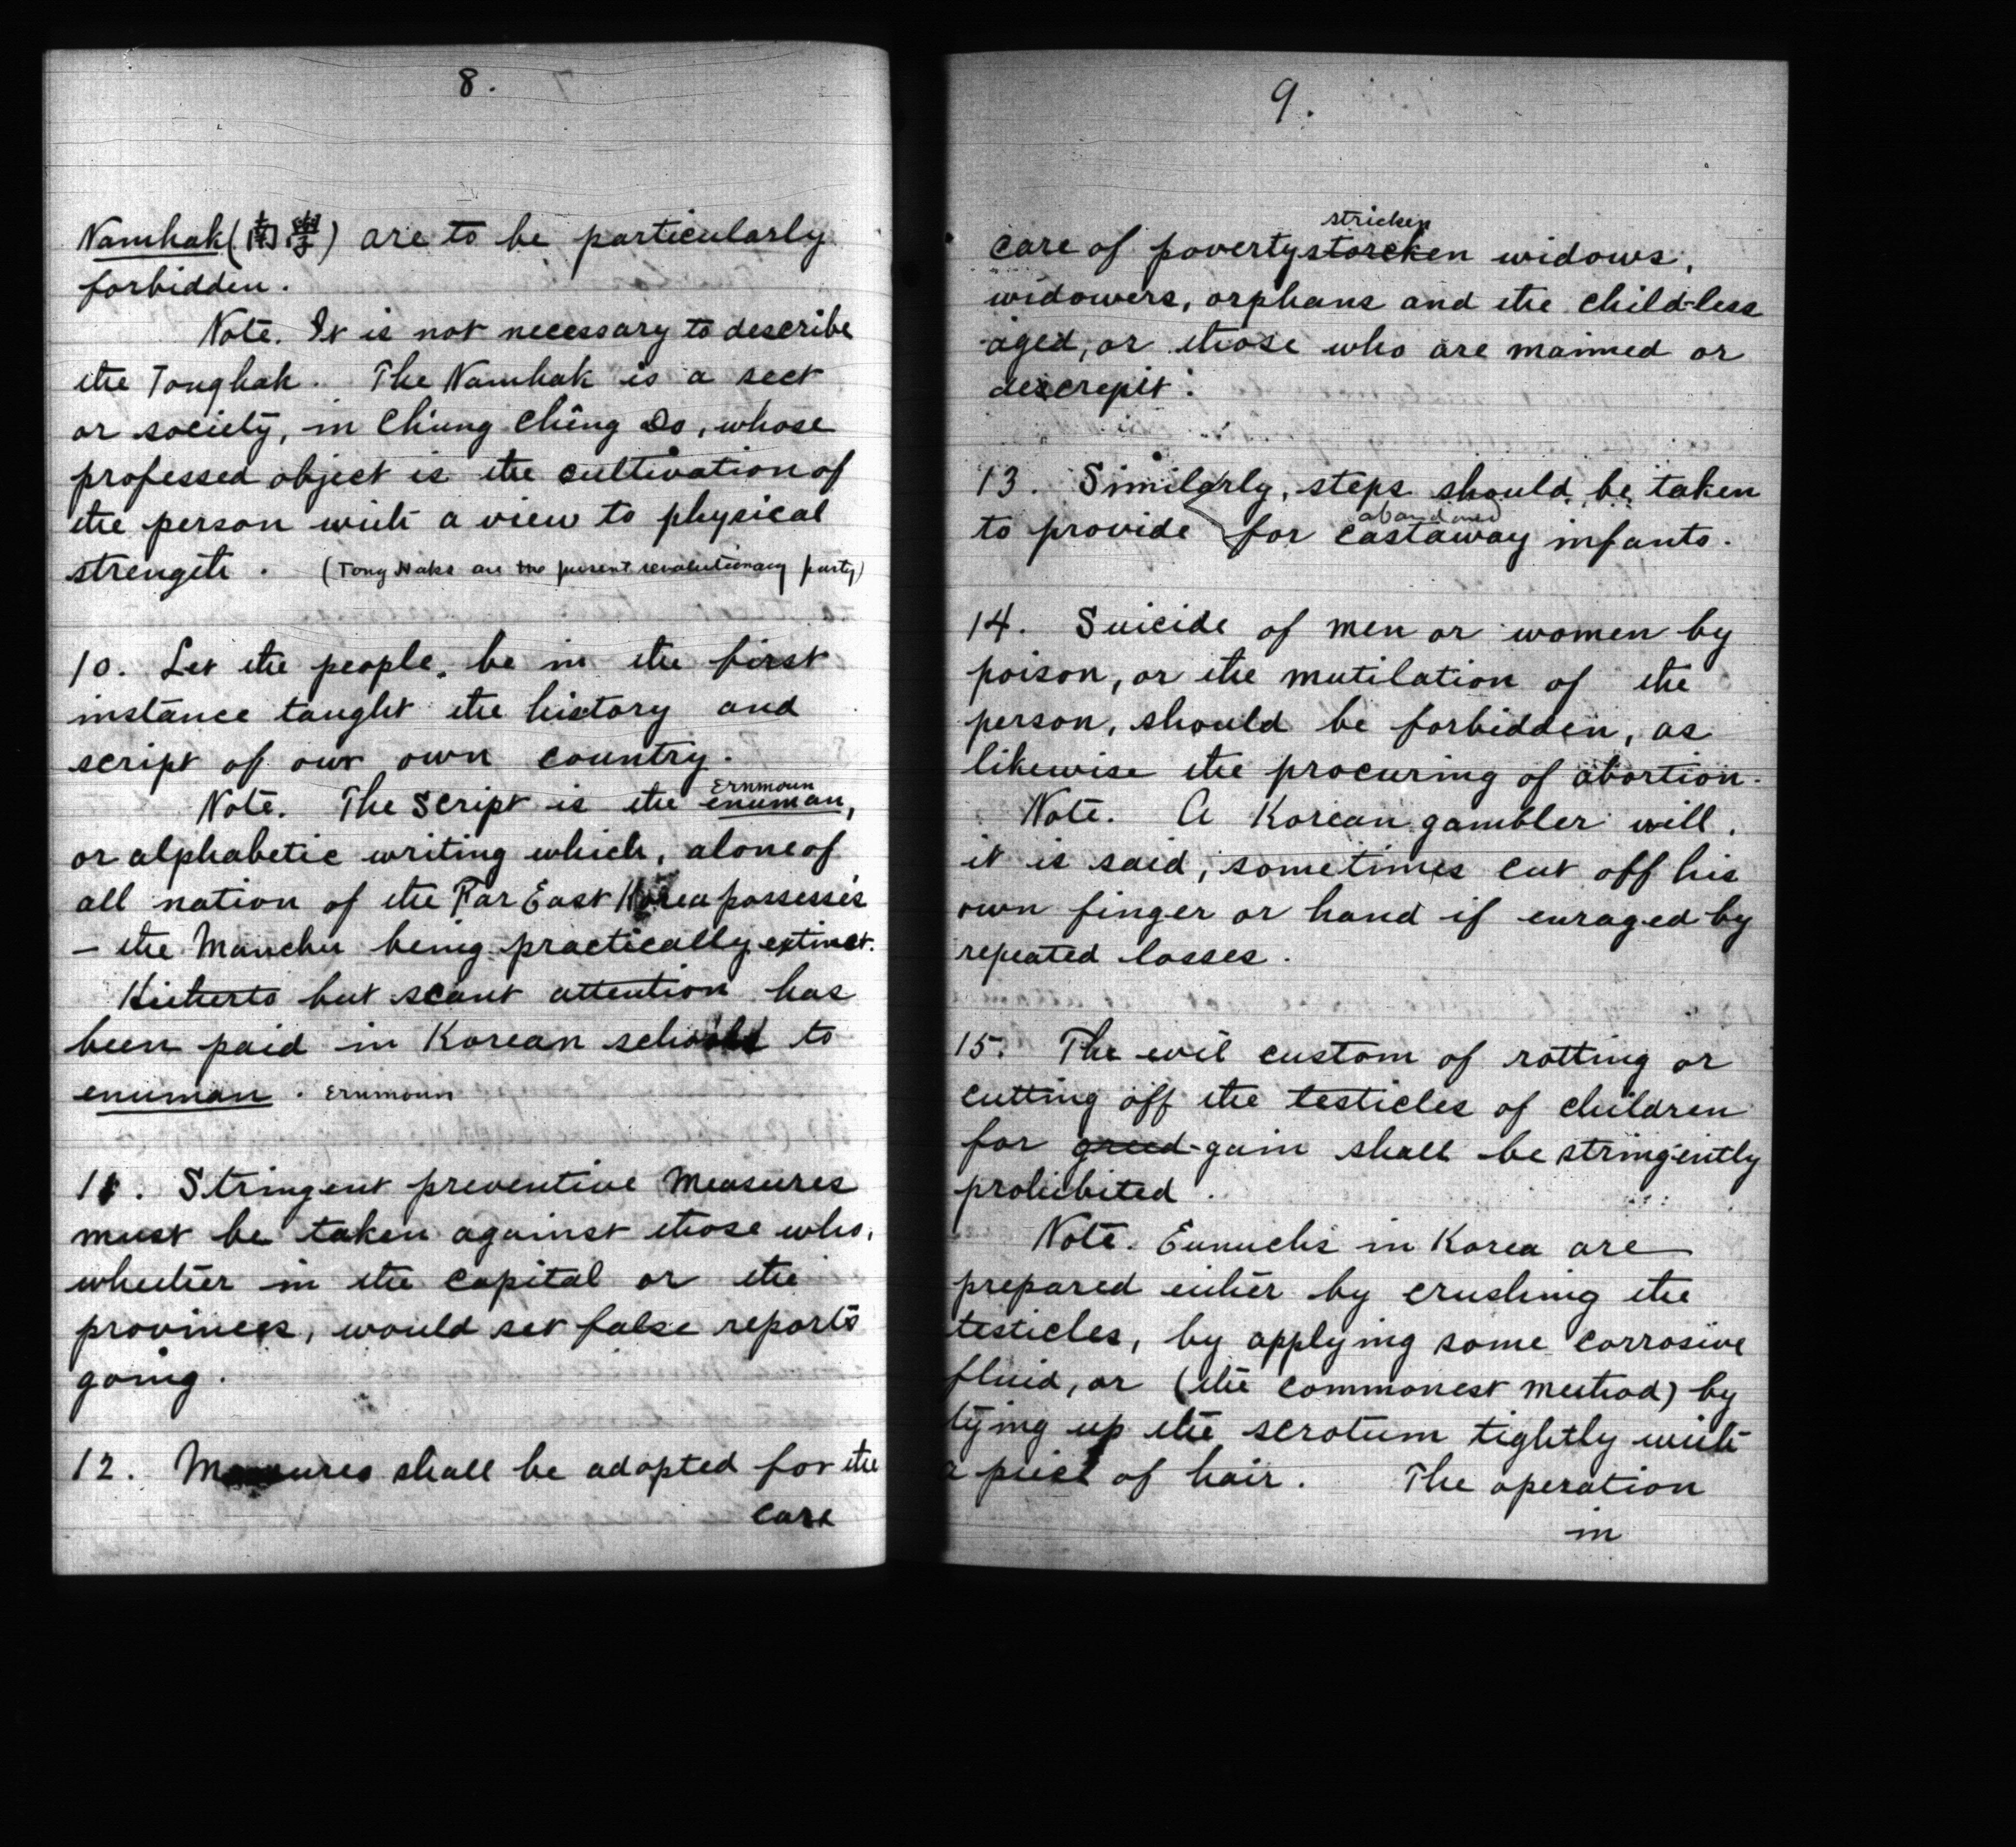 8.
Namhak (南學) are to be particularly
forbidden.
Note. It is not necessary to describe
the Tonghak. The Namhak is a sect
or society, in Chung Ching Do, whose
professed object is the cultivation of
the person with a view to physical
strength. (Tong Haks are the present revolutionary party)
10. Let the people, be in the first
instance taught the history and
script of our own country.
Ernmoun
Note. The script is the enuman,
or alphabetic writing which, alone of
all nation of the Far East Korea possesses
– the Manchu being practically extinct.
Hitherto but scant attention has
been paid in Korean schools to
enuman. Ernmoun
11. Stringent preventive measures
must be taken against those who,
whether in the capital or the
provinces, would set false reports
going.
12. Measures shall be adopted for the
care
9.
stricken
care of povertystorcken widows,
widowers, orphans and the child-less
aged, or those who are maimed or
descrepit.
13. Similarly, steps should be taken
abandoned
to provide for castaway infants.
14. Suicide of men or women by
poison, or the mutilation of the
person, should be forbidden, as
likewise the procuring of abortion.
Note. A Korean gambler will,
it is said, sometimes cut off his
own finger or hand if enraged by
repeated losses.
15. The evil custom of rotting or
cutting off the testicles of children
for greed gain shall be stringently
prohibited.
Note. Eunuchs in Korea are
prepared either by crushing the
testicles, by applying some corrosive
fluid, or (the commonest method) by
tying up the scrotum tightly with
a piece of hair. The operation
in